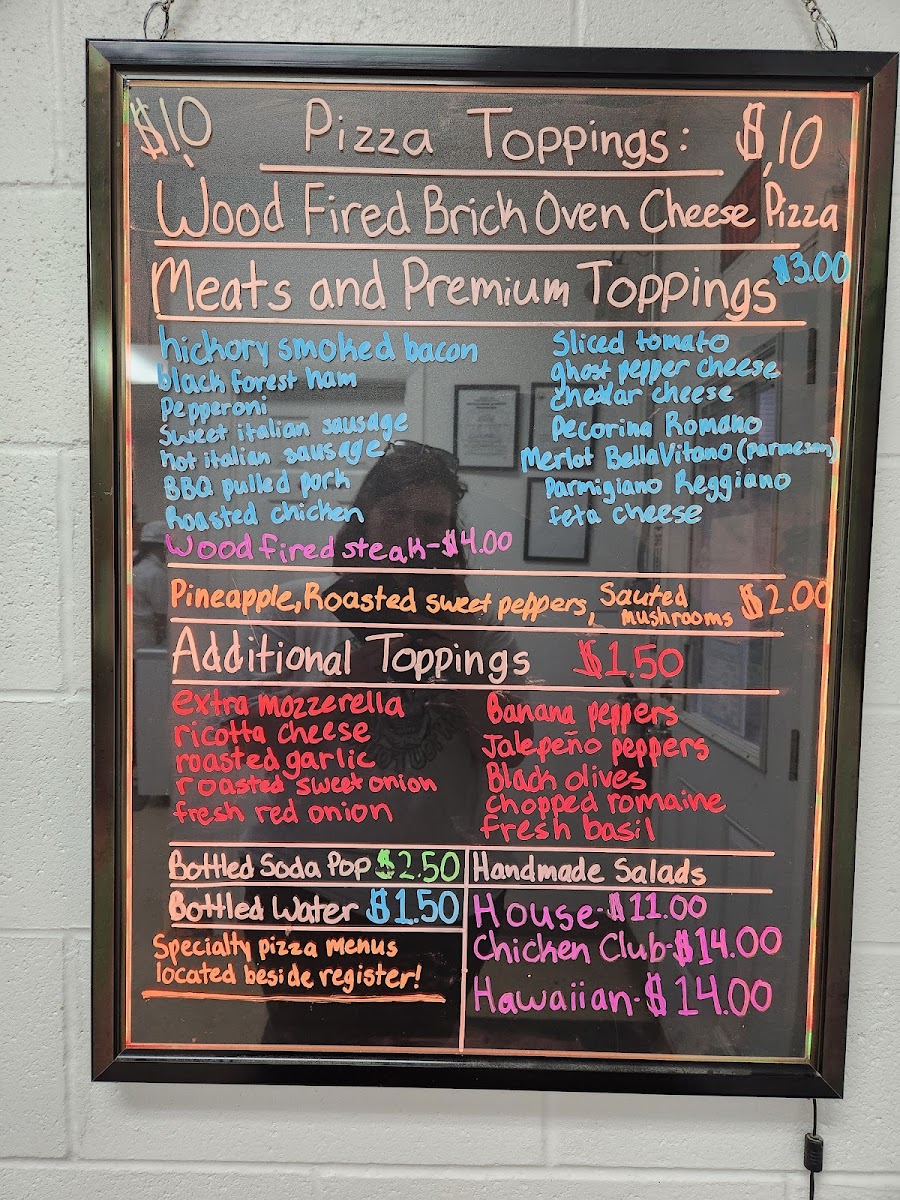 $10 Pizza Toppings: $10
Wood Fired Brick Oven Cheese Pizza
Meats and Premium Toppings $3.00
hickory smoked bacon
black forest ham
Pepperoni
Sweet italian sausage
hot italian sausage
BBQ pulled pork
Roasted chicken
Wood fired steak-$4.00
Sliced tomato
ghost pepper cheese
cheddar cheese
Pecorina Romano
Merlot BellaVitano (parmesan)
Parmigiano Reggiano
feta cheese
Pineapple, Roasted sweet peppers, Sauted mushrooms $2.00
Additional Toppings $1.50
extra mozzerella
ricotta cheese
roasted garlic
roasted sweet onion
fresh red onion
Banana peppers
Jalepeño peppers
Black olives
chopped romaine
fresh basil
Bottled Soda Pop $2.50
Bottled Water $1.50
Specialty pizza menus
located beside register!
Handmade Salads
House-$11.00
Chicken Club-$14.00
Hawaiian-$14.00